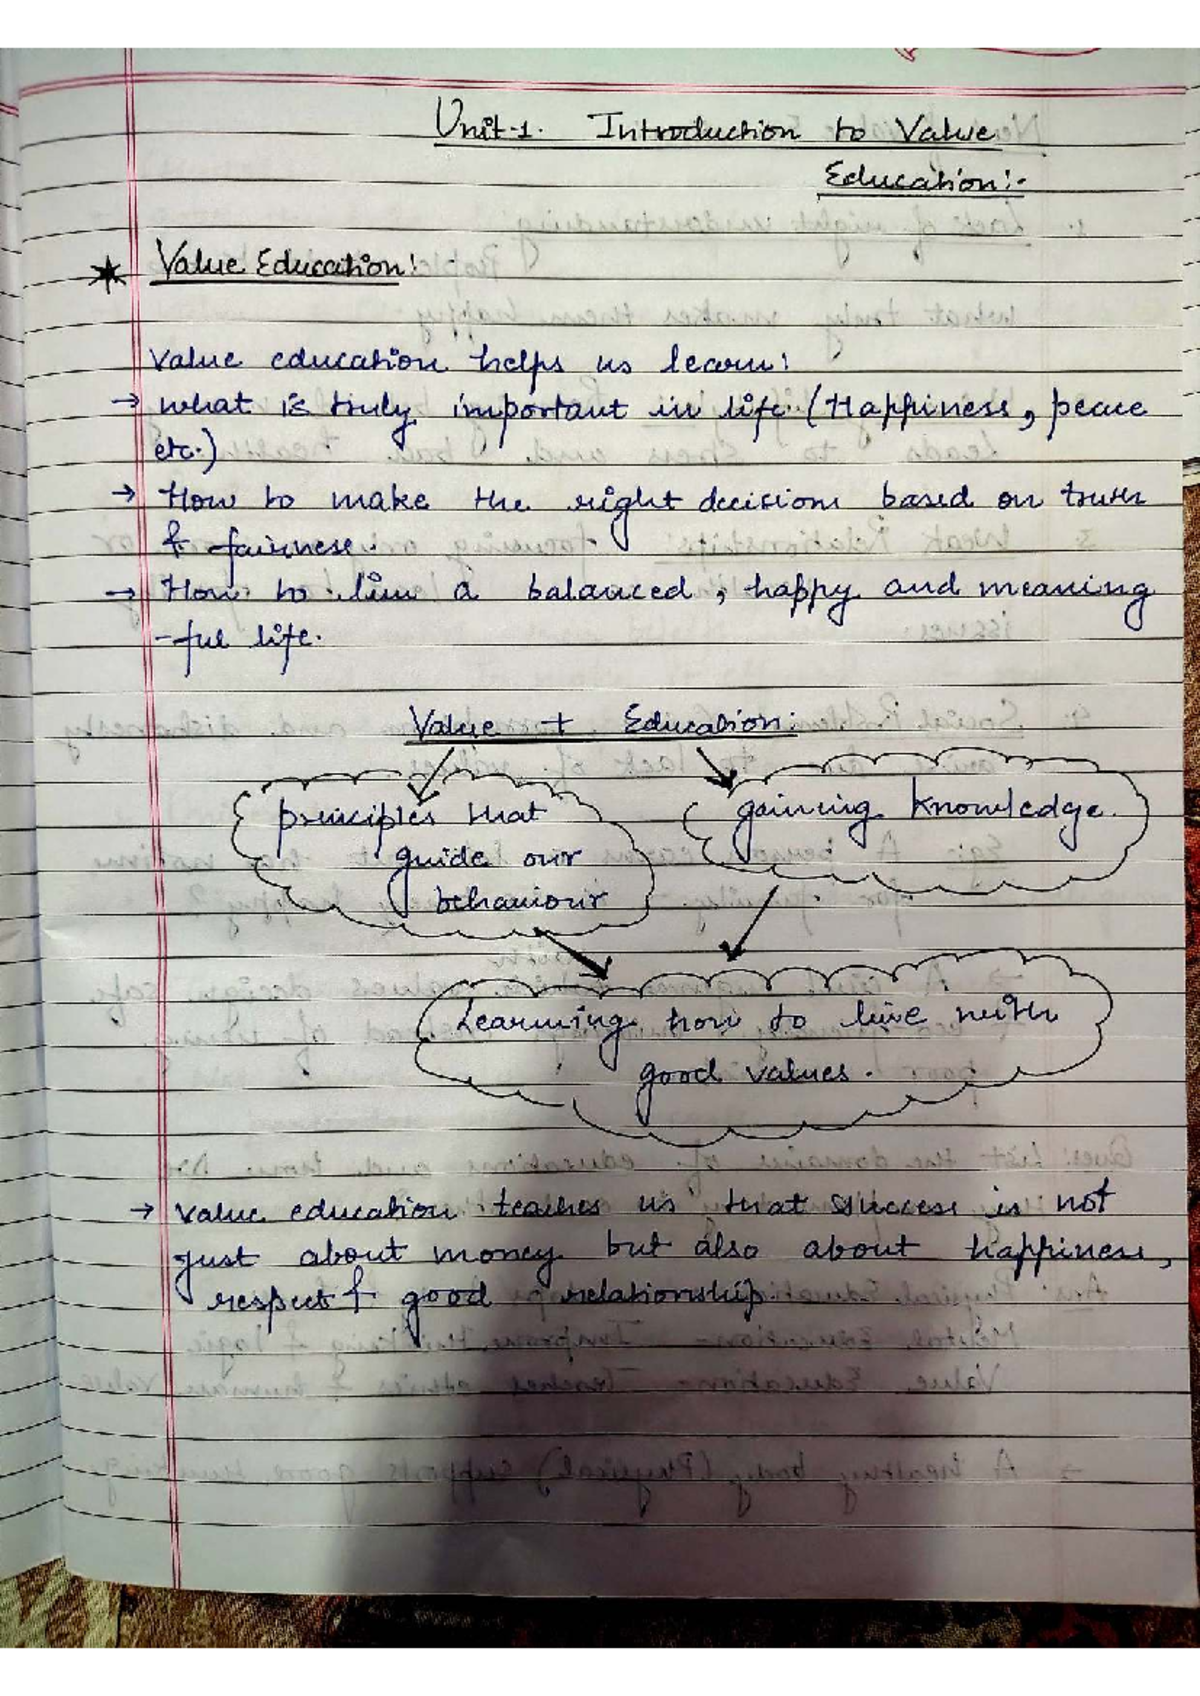 Unit-1. Introduction to Value
Education:-
Value Education!
Value education helps us learn!
→ what is truly important in life (Happiness, peace
etc.)
→ How to make the right decisions based on truth
& fairness.
→ How to live a balanced, happy and meaning
-ful life.
Value + Education:
principles that
guide our
behaviour
gaining knowledge.
Learning how to live with
good values.
→ Value education teaches us that success is not
just about money but also about happiness,
respect & good relationship.